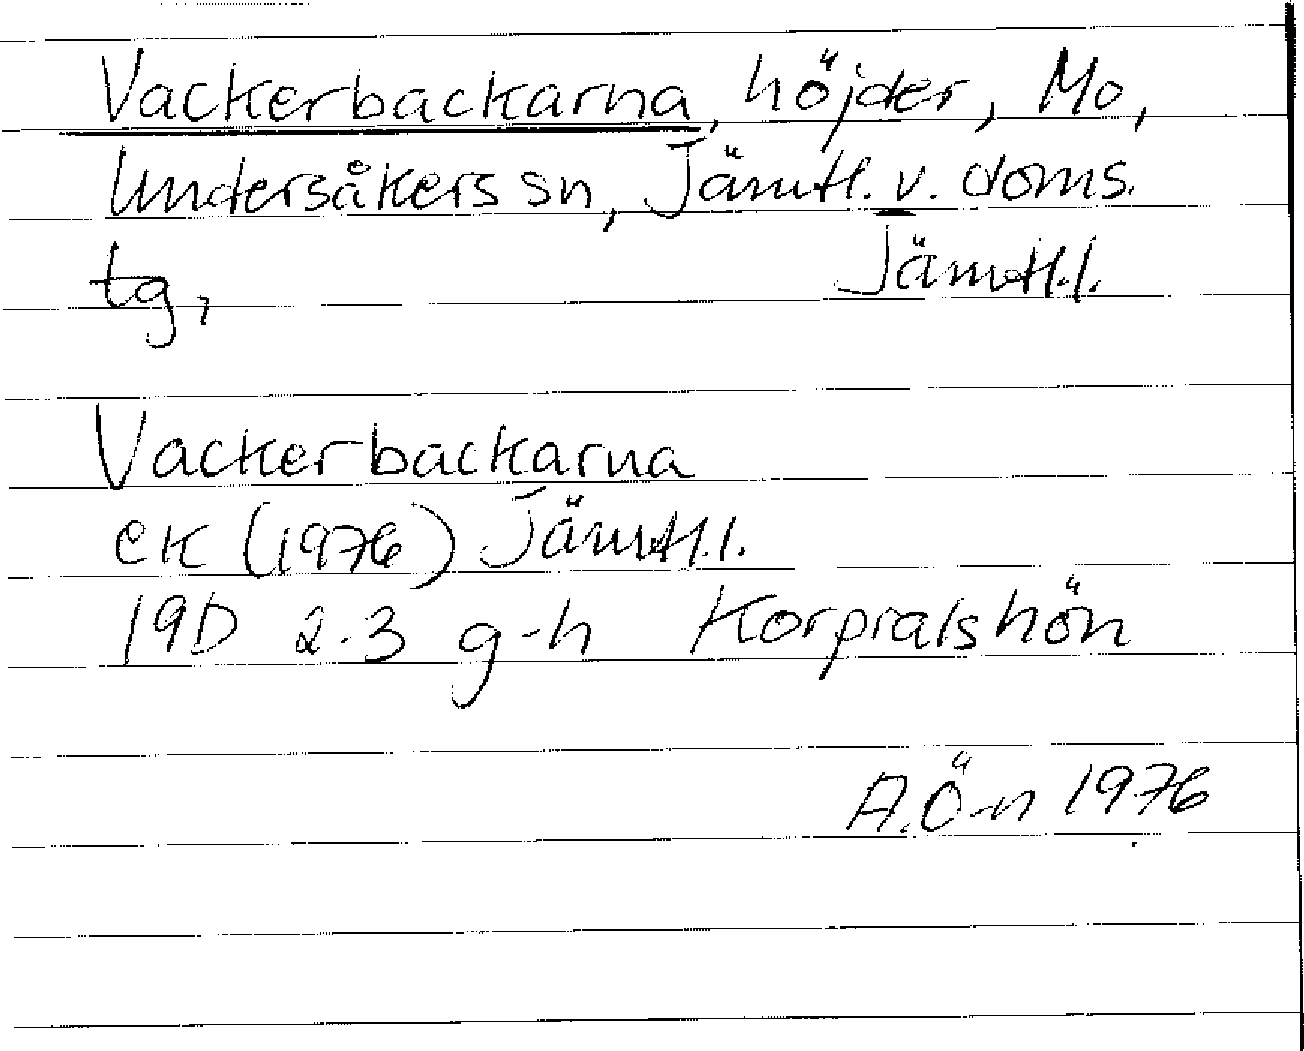 Vackerbackarna, höjder, Mo,
Undersåkers sn, Jämtl. v. doms.
tg, Jämtl.l.
Vackerbackarna
ek (1976) Jämtl.l.
19D 2-3 g-h Korpralshön
A.Ö-n 1976